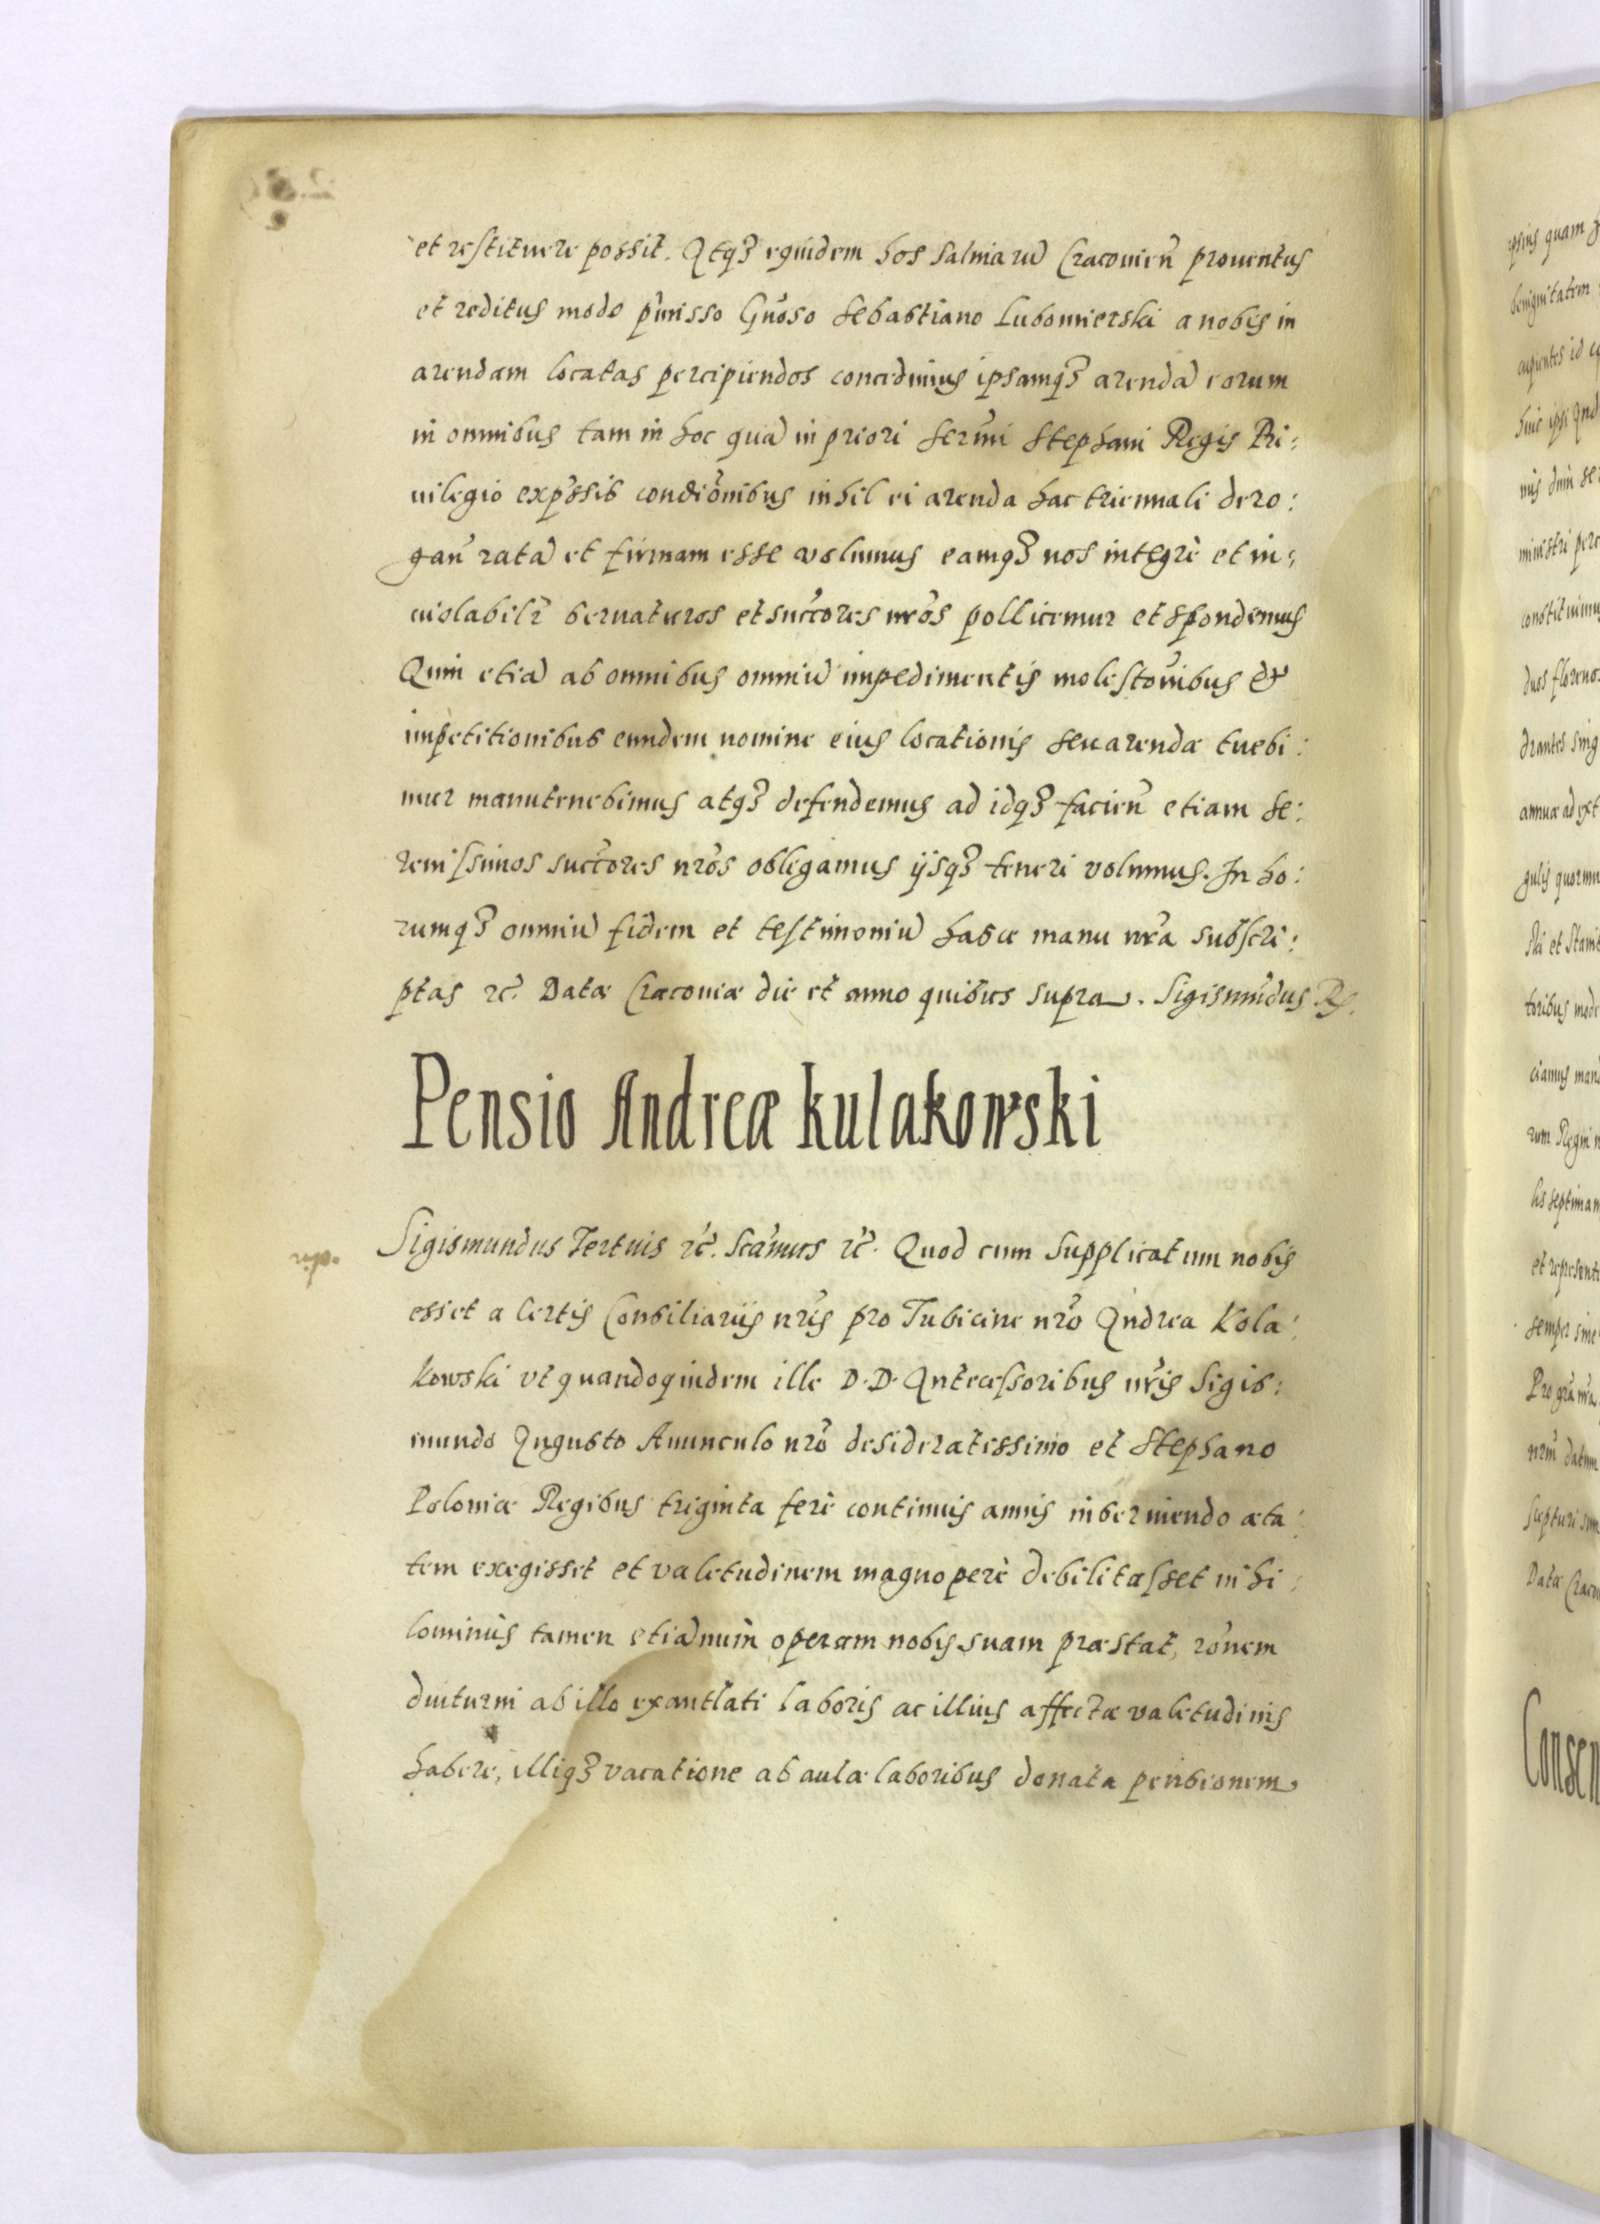 et restituere possit. Atqꝫ equidem hos Salinarū Cracouien̄ prouentus
et reditus modo p̄misso Gn̄oso Sebastiano Lubomierski a nobis in
arendam locatas percipiendos concedimus ipsamqꝫ arendā eorum
in omnibus tam in hoc quā in priori Ser̄mi Stephani Regis Pri:
uilegio exp̄ssis condic̄onibus inhil ei arenda hac triennali dero:
gan̄ ratā et firmam esse volumus eamqꝫ nos integrè et in:
uiolabilr̄ seruaturos et succ̄ores nr̄os pollicemur et spondemus
Quin etiā ab omnibus omniū impedimentis molestōnibus &
impetitionibus eundem nomine eius locationis seu arendæ tuebi:
mur manutenebimus atqꝫ defendemus ad idqꝫ facien̄ etiam Se:
renissimos succ̄ores nr̄os obligamus ijsqꝫ teneri volumus. In ho:
rumqꝫ omniū fidem et testimoniū hasce manu nr̄a subscri:
ptas ꝛc̄. Datæ Cracouiæ die et anno quibus supra. Sigismūdus Rx.
Pensio Andreæ Kulakowski
Sigismundus Tertius ꝛc̄. Scāmus ꝛc̄. Quod cum supplicatum nobis
esset a Certis Consiliariis nr̄is pro Tubicine nr̄o Andrea Kola:
kowski vt quandoquidem ille D. D. Antecessoribus nr̄is Sigis:
mundo Augusto Auunculo nr̄o desideratissimo et Stephano
Poloniæ Regibus triginta ferè continuis annis inseruiendo æta:
tem exegisset et valetudinem magnoperè debilitasset nihi:
lominùs tamen etiānùm operam nobis suam præstat, rōnem
diuturni ab illo exantlati laboris ac illius affectæ valetudinis
habere, illiqꝫ vacatione ab aulæ laboribus donata pensionem